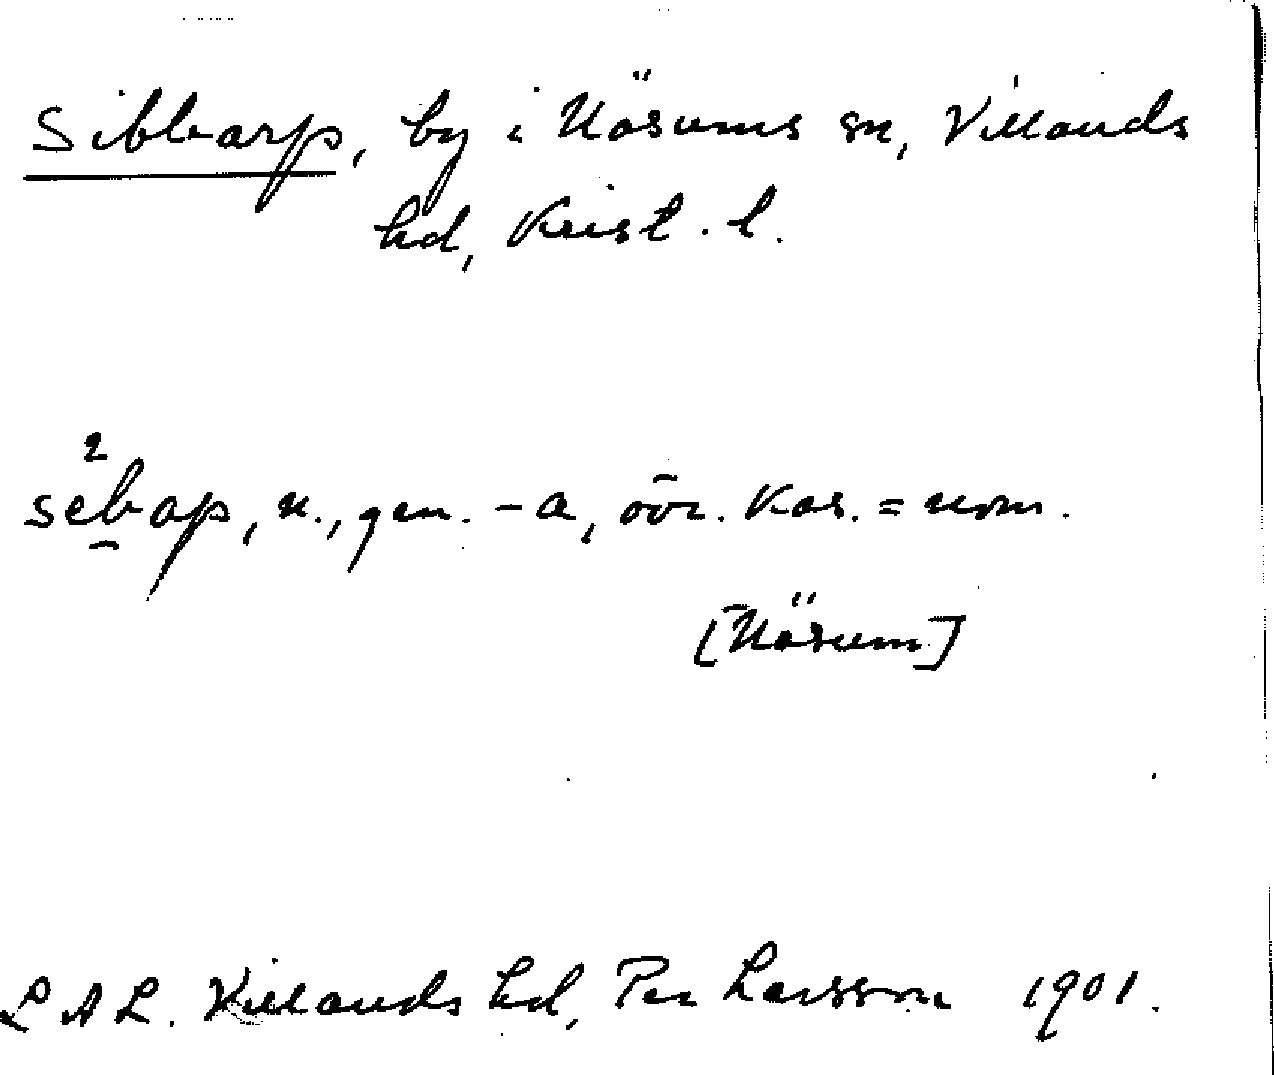 Sibbarp, by i Näsums sn, Villands
hd, Krist. l.
sèb̲ap, n., gen. -a, övr. kas. = nom.
[Näsum]
LAL. Villands hd, Per Larsson 1901.